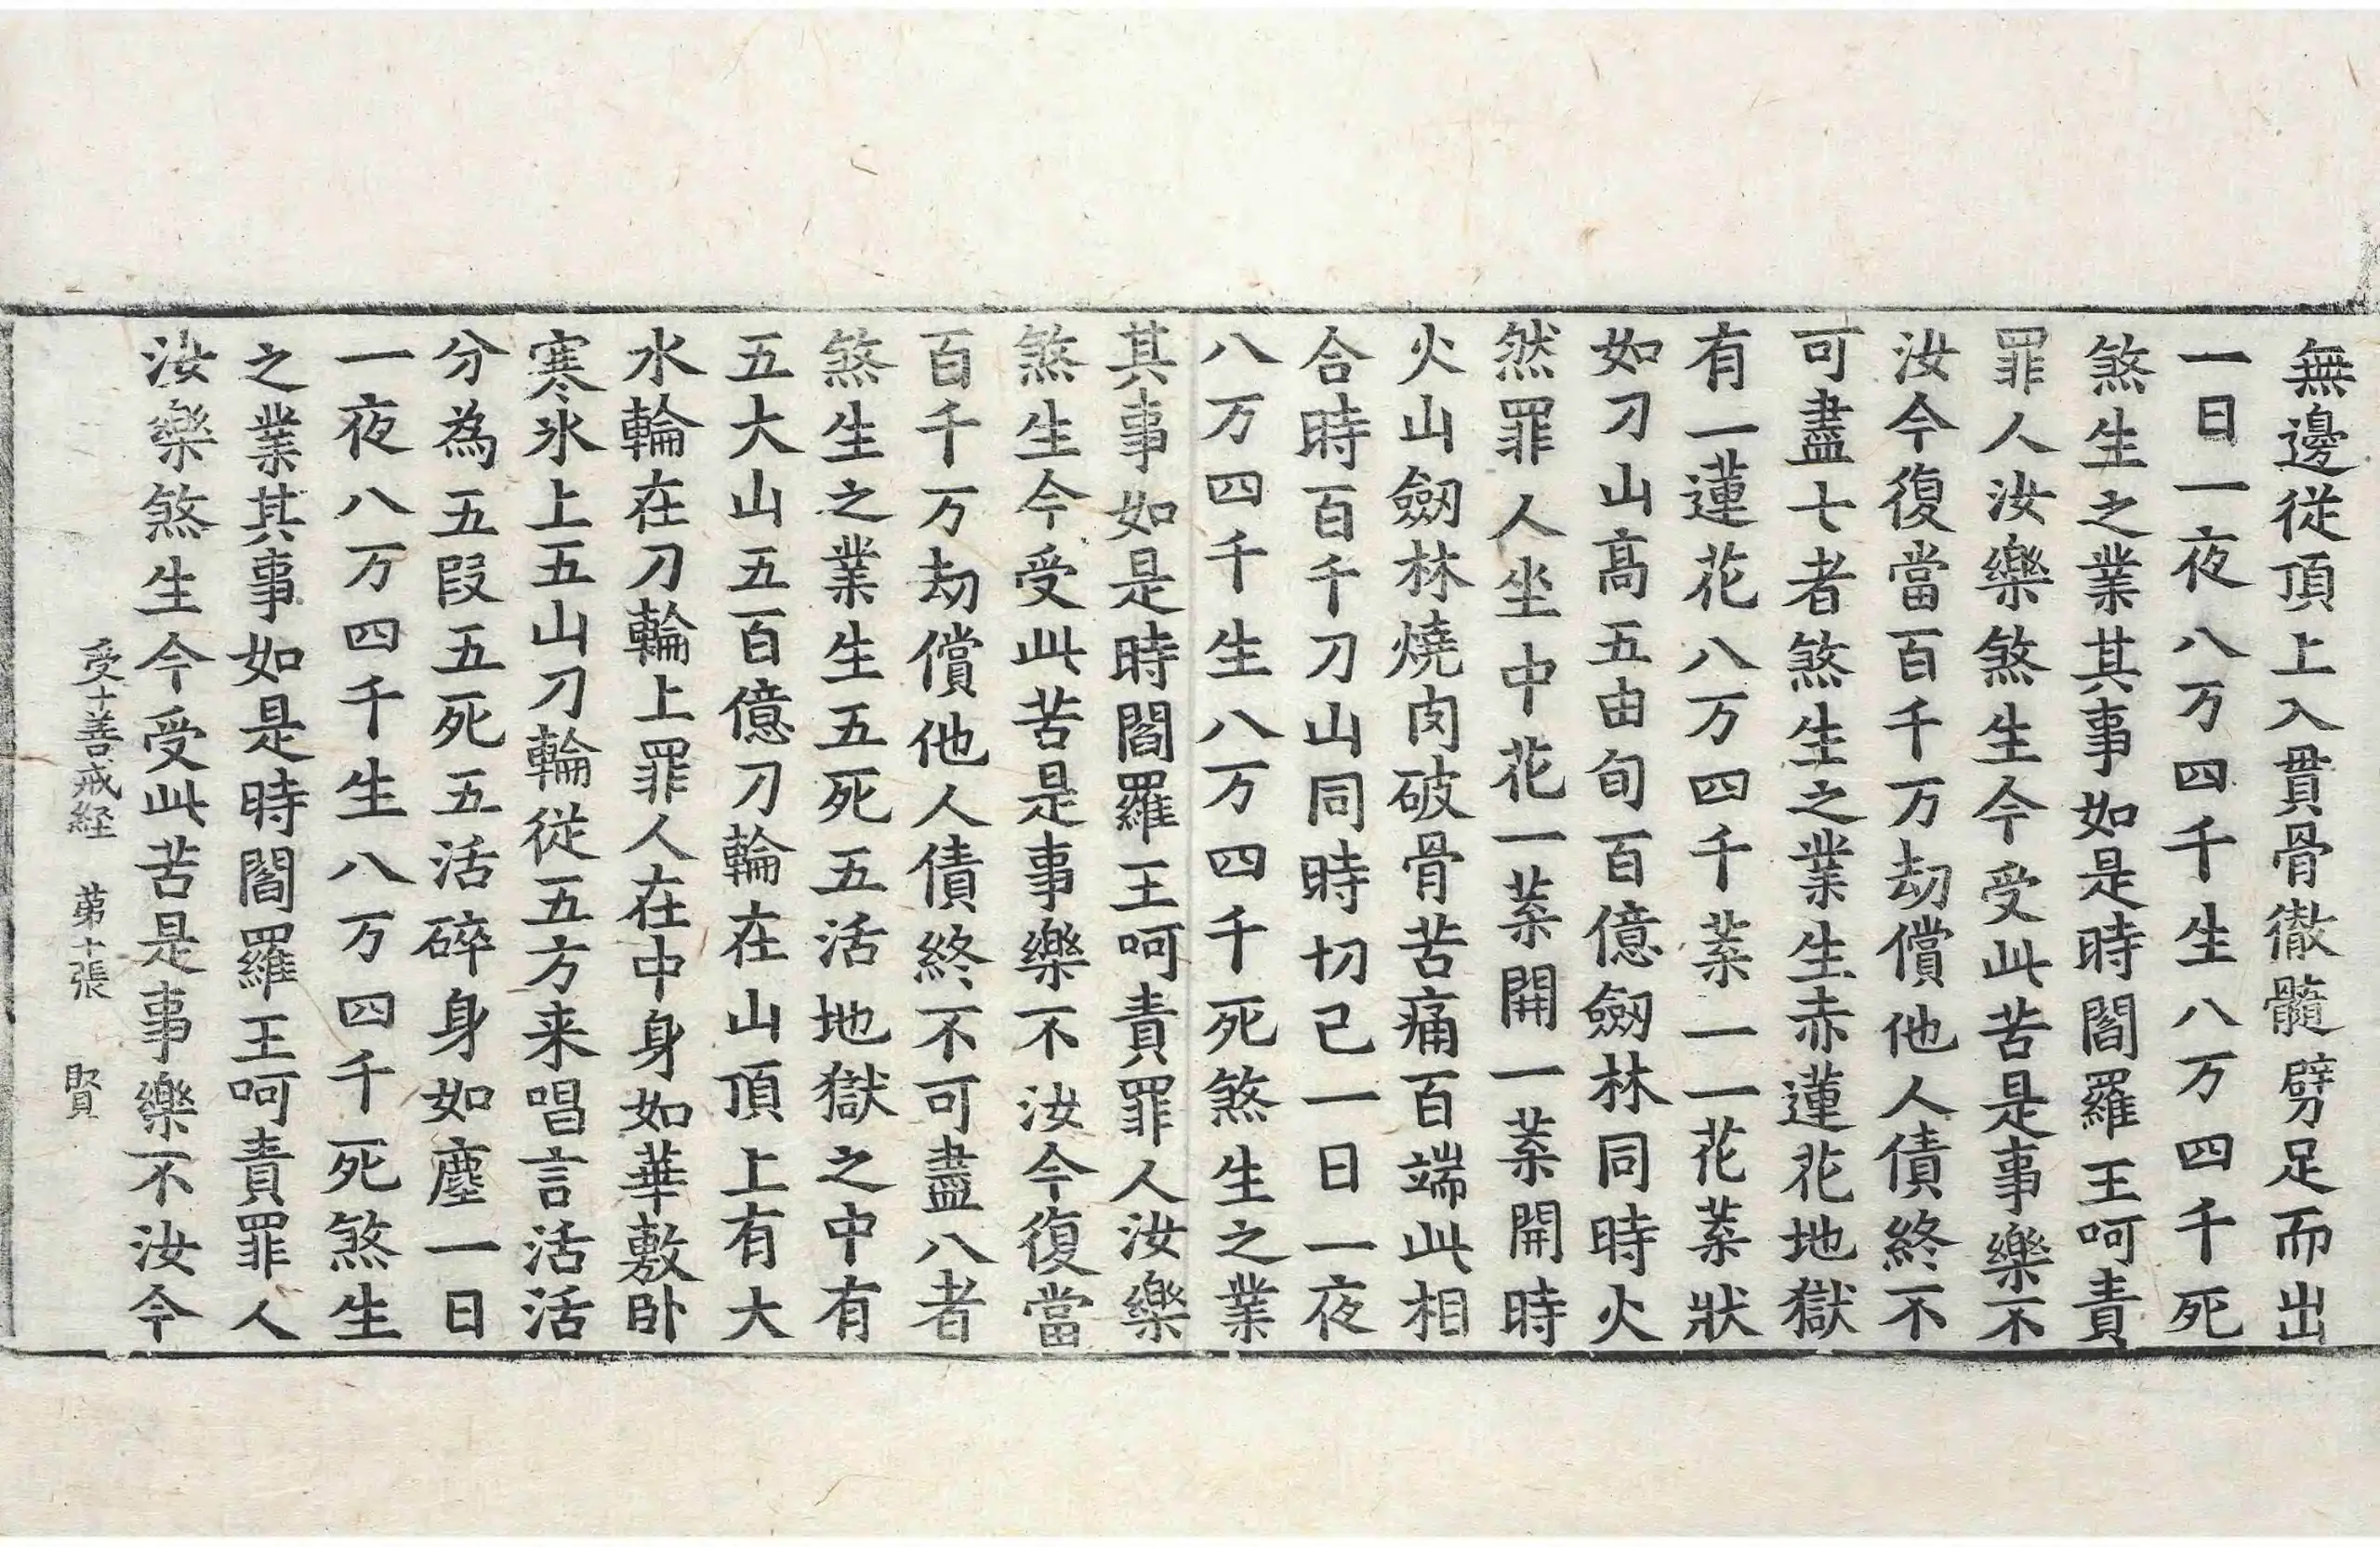 無邊従頂上入貫骨徹髓劈足而出
一日一夜八万四千生八万四千死
煞生之業其事如是時閻羅王呵責
罪人汝樂煞生今受此苦是事樂不
汝今復當百千万劫償他人債終不
可盡七者煞生之業生赤蓮花地獄
有一蓮花八万四千葉一一花葉狀
如刀山高五由旬百億劒林同時火
然罪人坐中花一葉開一葉開時
火山劒林燒肉破骨苦痛百端此相
合時百千刀山同時切己一日一夜
八万四千生八万四千死煞生之業
其事如是時閻羅王呵責罪人汝樂
煞生今受此苦是事樂不汝今復當
百千万劫償他人債終不可盡八者
煞生之業生五死五活地獄之中有
五大山五百億刀輪在山頂上有大
水輪在刀輪上罪人在中身如華敷卧
寒氷上五山刀輪從五方来唱言活活
分為五段五死五活碎身如塵一日
一夜八万四千生八万四千死煞生
之業其事如是時閻羅王呵責罪人
汝樂煞生今受此苦是事樂不汝今
受十善戒経 苐十張 賢